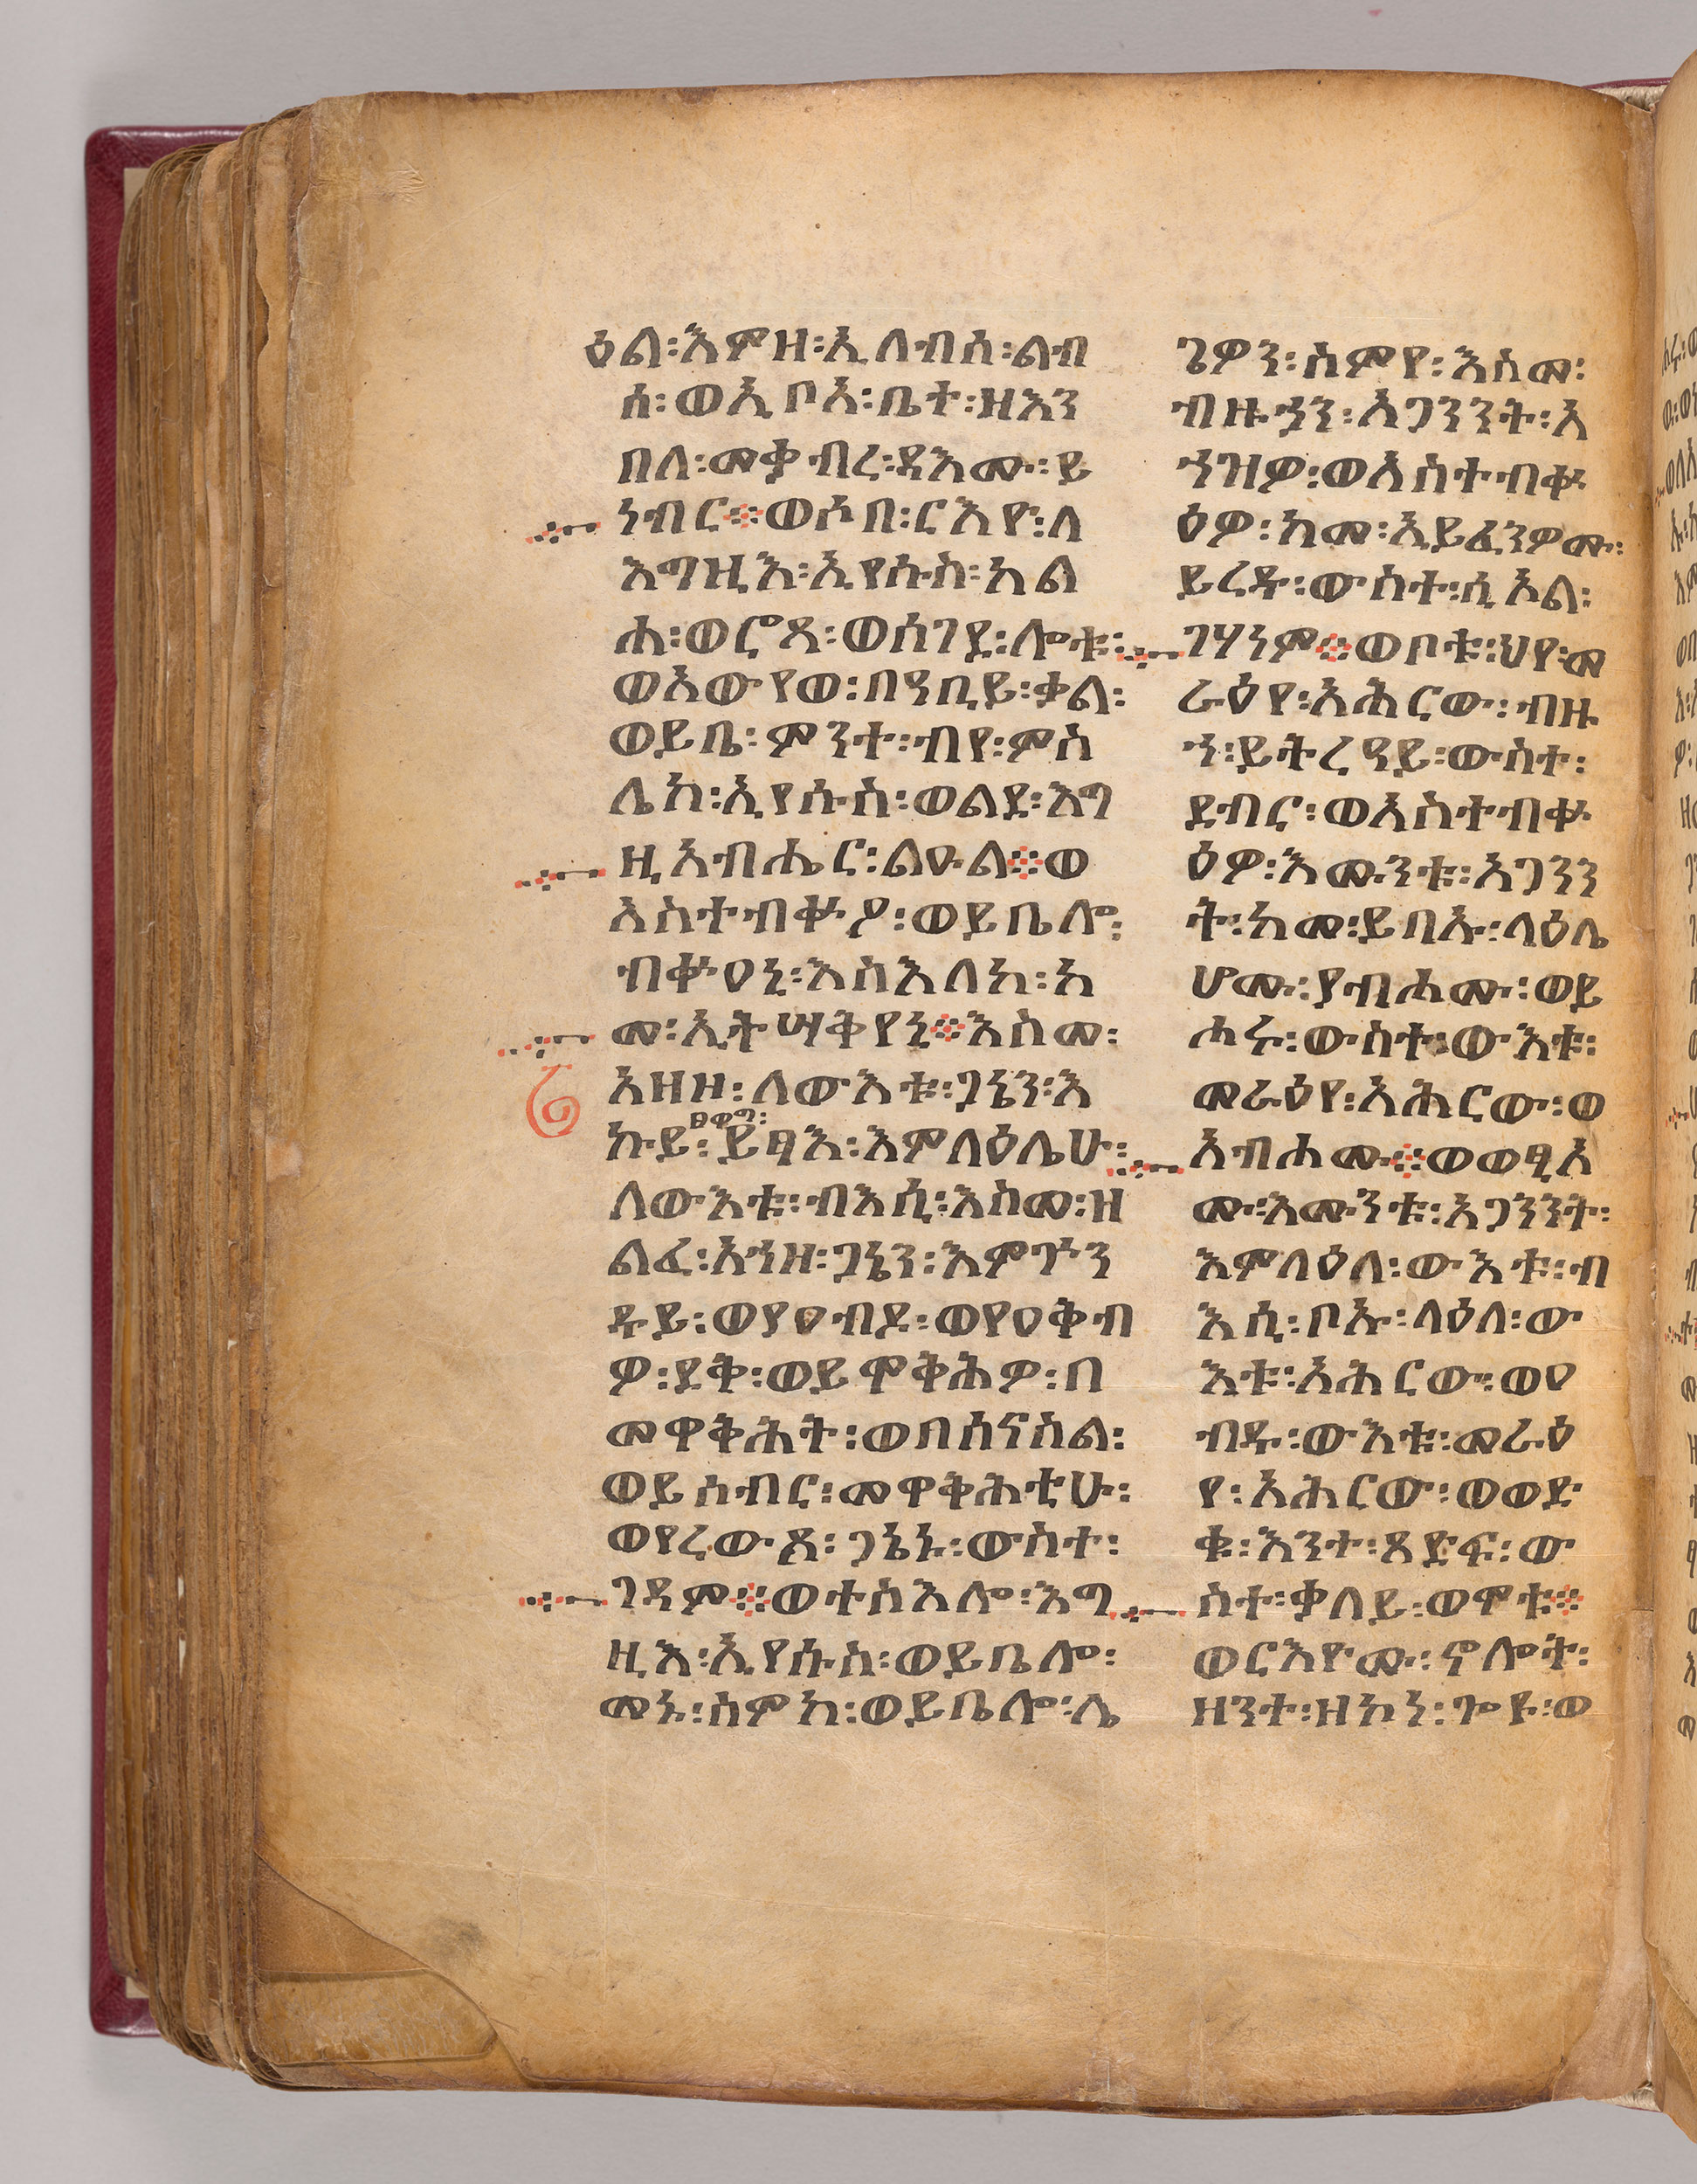 ዕል፡እምዘ፡ኢለብሰ፡ልብ
ሰ፡ወኢቦአ፡ቤተ፡ዘእን
በለ፡መቃብረ፡ዳእሙ፡ይ
ነብር፨ወሶበ፡ርእዮ፡ለ
እግዚእ፡ኢየሱስ፡አል
ሐ፡ወሮጸ፡ወሰገደ፡ሎቱ፡
ወአውየወ፡በዓቢይ፡ቃል፡
ወይቤ፡ምንተ፡ብየ፡ምስ
ሌከ፡ኢየሱስ፡ወልደ፡እግ
ዚአብሔር፡ልዑል፨ወ
አስተብቍዖ፡ወይቤሎ፡
ብቍዐኒ፡እስእለከ፡አ
መ፡ኢትሣቅየኒ፨እስመ፡
አዘዞ፡ለውእቱ፡ጋኔን፡እ
ፀዋግ፡
ኩይ፡ይፃእ፡እምላዕሌሁ፡
ለውእቱ፡ብእሲ፡እስመ፡ዘ
ልፈ፡አኀዘ፡ጋኔን፡እምጕን
ዱይ፡ወያዐብዶ፡ወየዐቅብ
ዎ፡ደቅ፡ወይሞቅሕዎ፡በ
መዋቅሕት፡ወበሰናስል፡
ወይሰብር፡መዋቅሕቲሁ፡
ወየረውጾ፡ጋኔኑ፡ውስተ፡
ገዳም፨ወተስእሎ፡እግ
ዚእ፡ኢየሱስ፡ወይቤሎ፡
መኑ፡ስምከ፡ወይቤሎ፡ሌ
ጌዎን፡ስምየ፡እስመ፡
ብዙኃን፡አጋንንት፡አ
ኀዝዎ፡ወአስተብቍ
ዕዎ፡ከመ፡ኢይፈንዎሙ፡
ይረዱ፡ውስተ፡ሲኦል፡
ገሃነም፨ወቦቱ፡ህየ፡መ
ራዕየ፡አሕርው፡ብዙ
ኅ፡ይትረዓይ፡ውስተ፡
ደብር፡ወአስተብቍ
ዕዎ፡እሙንቱ፡አጋንን
ት፡ከመ፡ይባኡ፡ላዕሌ
ሆሙ፡ያብሐሙ፡ወይ
ሑሩ፡ውስተ፡ውእቱ፡
መራዕየ፡አሕርው፡ወ
አብሖሙ፨ወወፂኦ
ሙ፡እሙንቱ፡አጋንንት፡
እምላዕለ፡ውእቱ፡ብ
እሲ፡ቦኡ፡ላዕለ፡ው
እቱ፡አሕርው፡ወዐ
ብዱ፡ውእቱ፡መራዕ
የ፡አሕርው፡ወወድ
ቁ፡እንተ፡ጸድፍ፡ው
ስተ፡ቀላይ፡ወሞቱ፨
ወርእዮሙ፡ኖሎት፡
ዘንተ፡ዘኮነ፡ጐዩ፡ወ